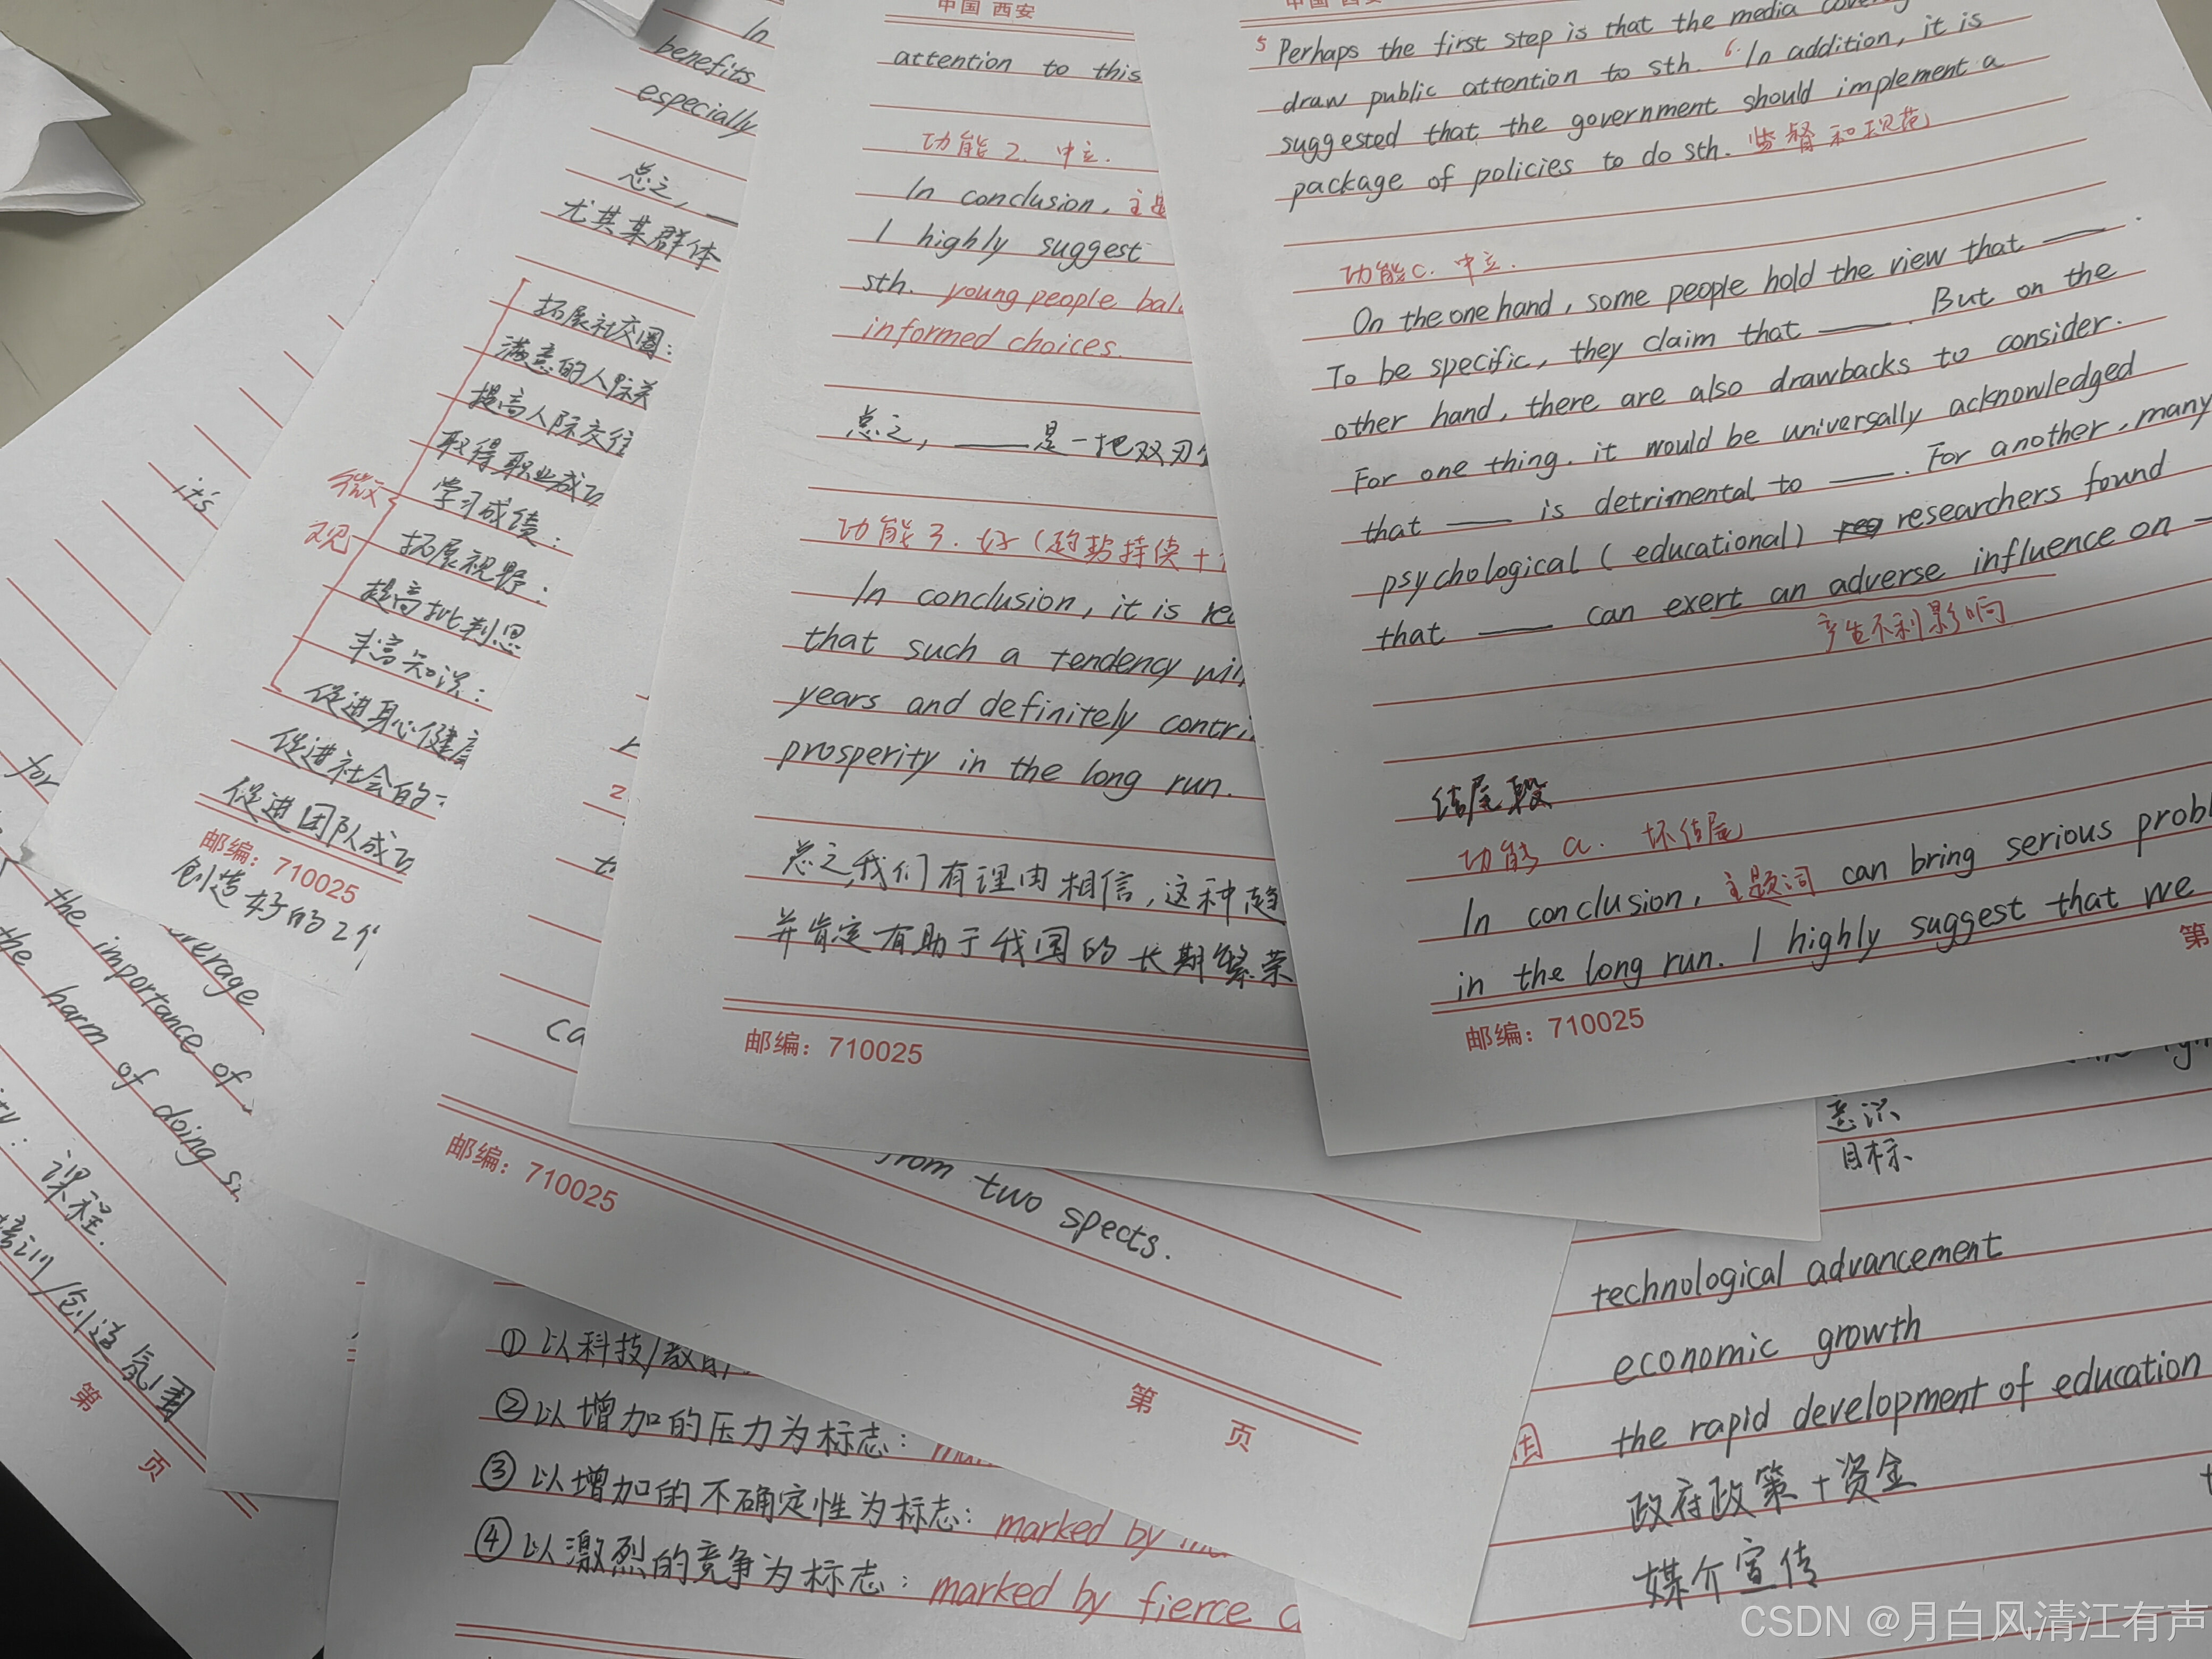 中国 西安
5 Perhaps the first step is that the media
draw public attention to sth. 6. In addition, it is
suggested that the government should implement a
package of policies to do sth. 监督和规范
功能c. 中立.
On the one hand, some people hold the view that ——.
To be specific, they claim that ——. But on the
other hand, there are also drawbacks to consider.
For one thing, it would be universally acknowledged
that —— is detrimental to ——. For another, many
psychological (educational) researchers found
that —— can exert an adverse influence on
产生不利影响
结尾段
功能 a. 坏结尾
In conclusion, 主题词 can bring serious
in the long run. I highly suggest that we
第
邮编：710025
中国 西安
attention to this
功能2. 中立.
In conclusion, 主题
I highly suggest
sth. young people
informed choices.
总之, ——是一把双刃
功能3. 好(趋势持续+
In conclusion, it is
that such a tendency
years and definitely
prosperity in the long run.
总之,我们有理由相信,这种趋
并肯定有助于我国的长期繁荣
邮编：710025
In
benefits
especially
总之, ——
尤其某群体
微观
拓展社交圈:
满意的人际关
提高人际交往
取得职业成功
学习成绩:
拓展视野:
提高批判思
丰富知识:
促进身心健康
促进社会的
促进团队成功
邮编：710025
创造好的2个
it's
for
the importance of
the harm of doing
课程.
培训/创造氛围
第 页
from two spects.
邮编：710025
第 页
①以科技/教育
②以增加的压力为标志:
③以增加的不确定性为标志: marked by
④以激烈的竞争为标志: marked by fierce
意识
目标
technological advancement
economic growth
the rapid development of education
政府政策+资金
媒介宣传
CSDN @月白风清江有声